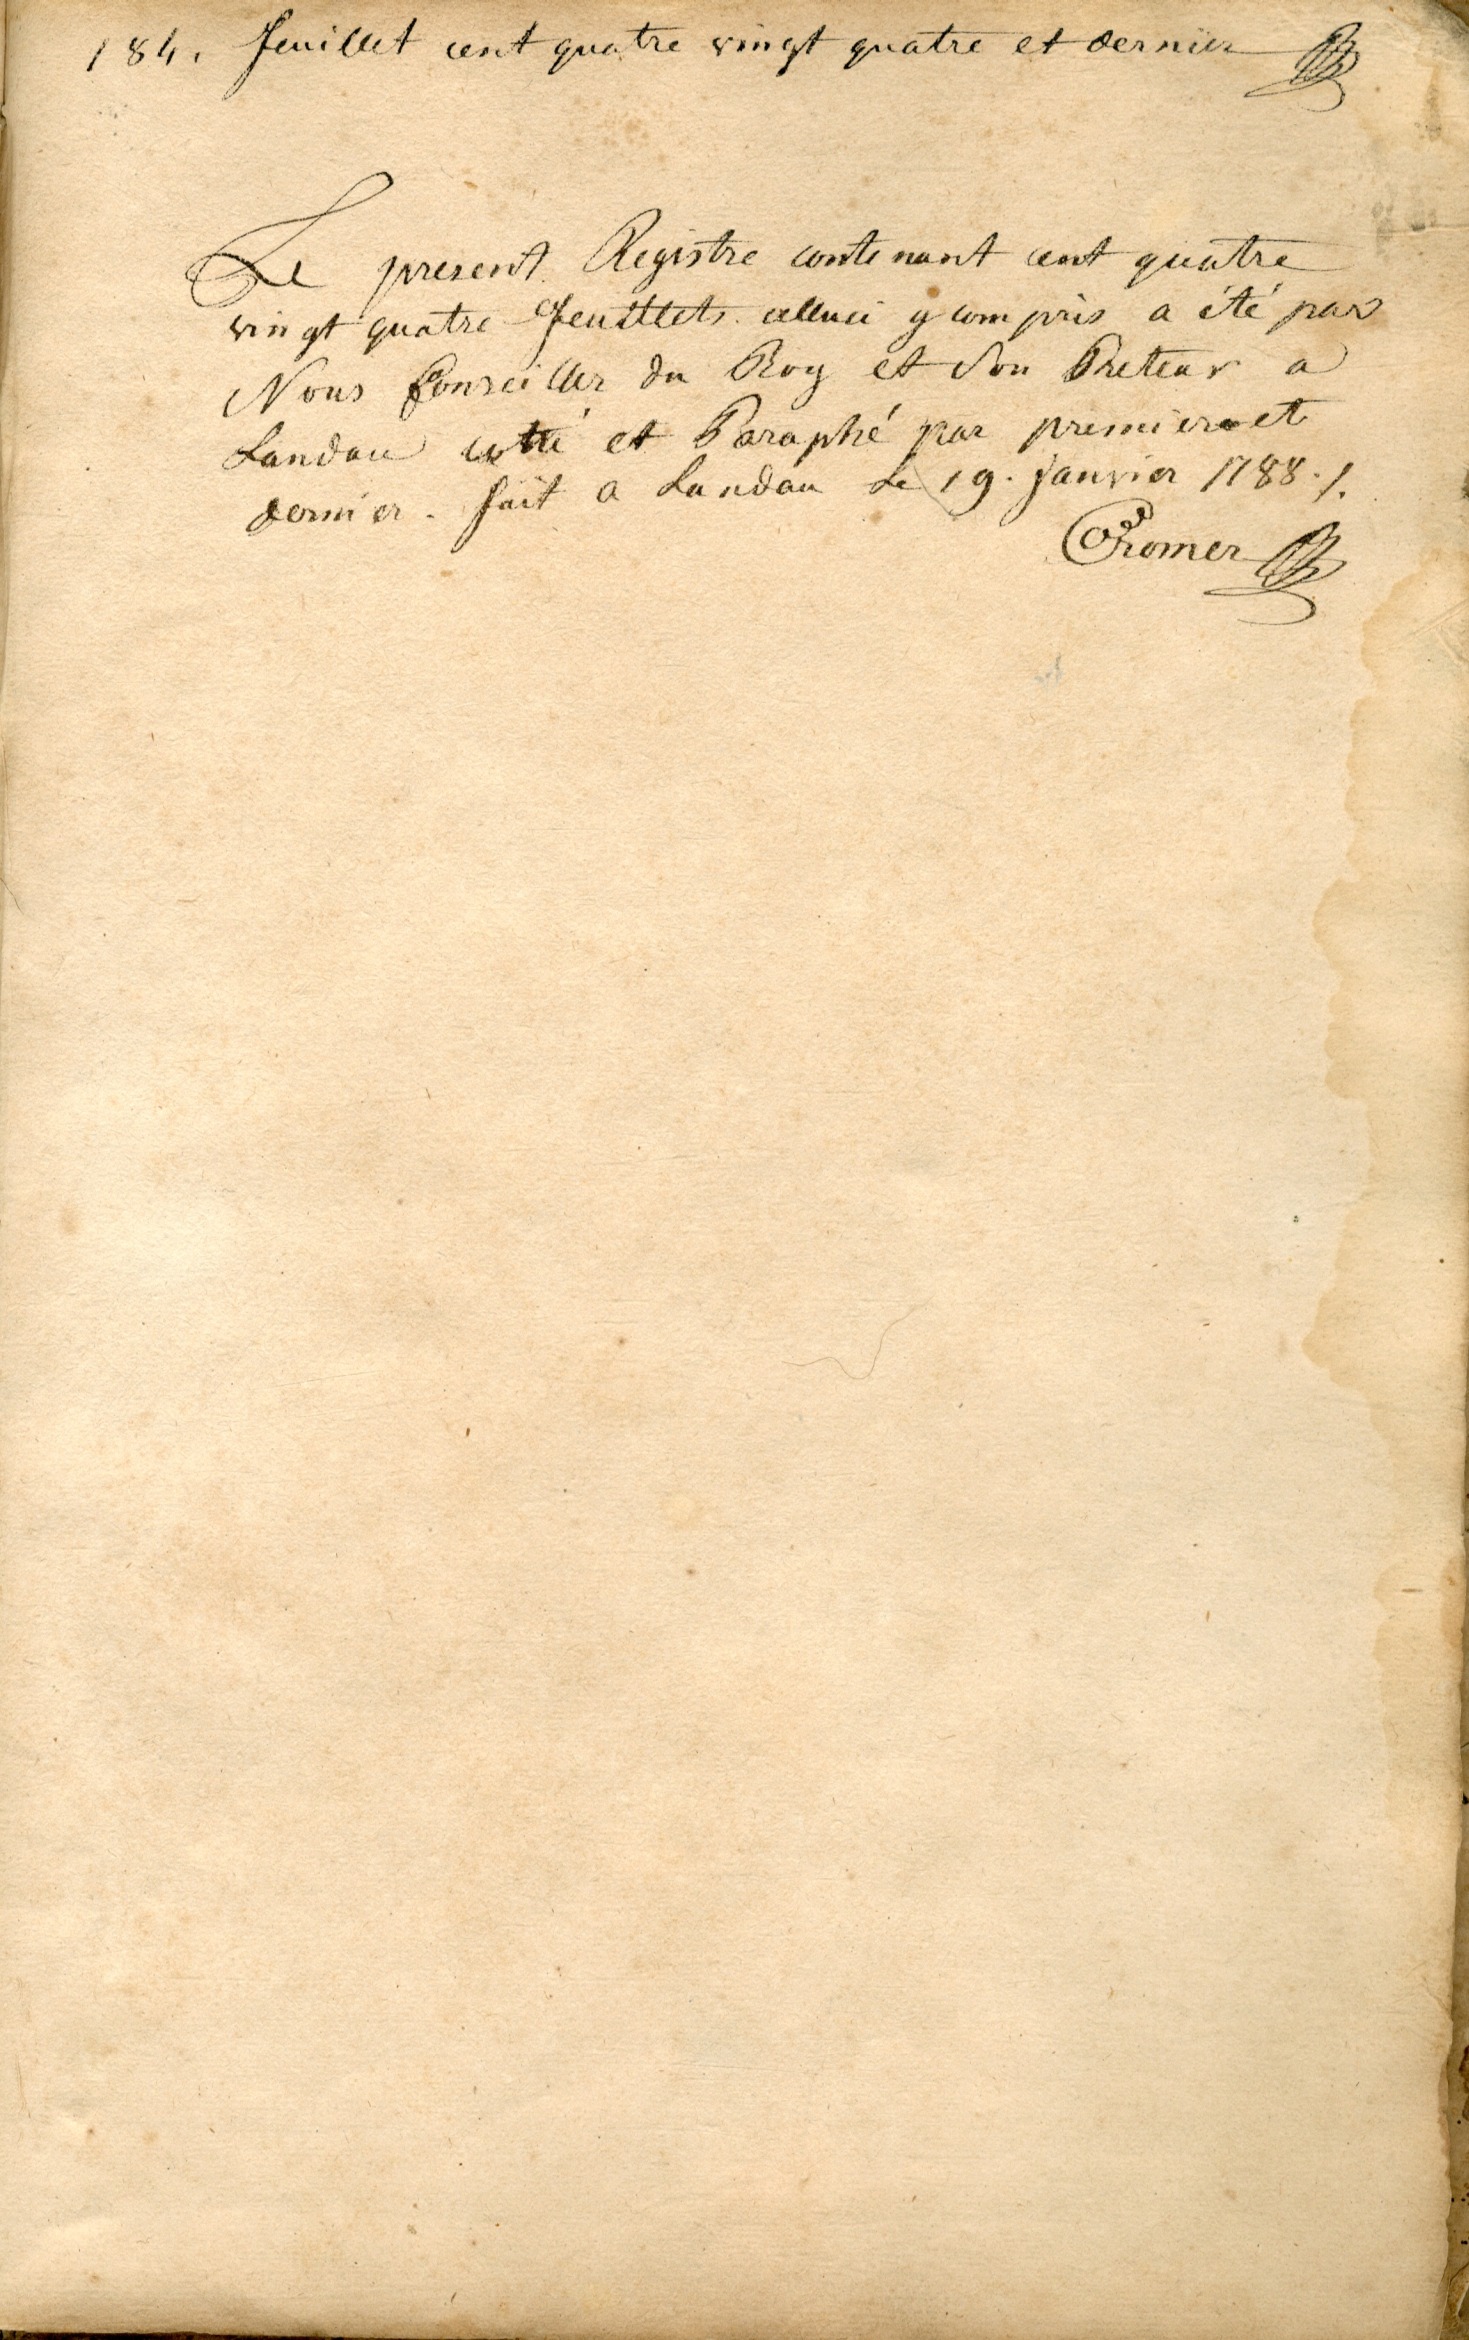 184. feuillet cent quatre vingt quatre et dernier
Le present Registre contenant cent quatre
vingt quatre feuillets celluci y compris a été par
Nous Conseiller du Roy et Son Preteur a
Landau cotté et Paraphé par premier et
dernier. fait a Landau Le 19. Janvier 1788./.
Cromer